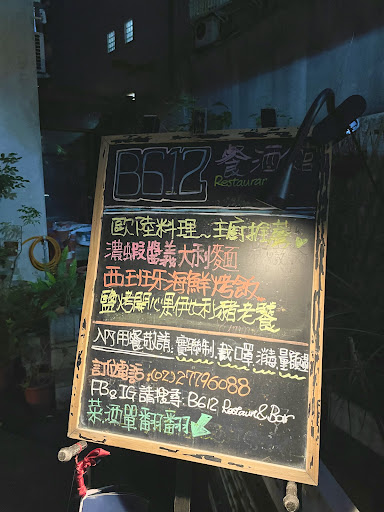 B612 餐酒館
Restaurant
歐陸料理~主廚推薦
濃蝦醬義大利麵
西班牙海鮮烤飯
鹽烤開心果伊比利豬老饕
入內用餐敬請:實聯制、戴口罩、消毒、量額溫
訂位電話:(02)27796088
FB & IG 請搜尋:B612 Restaurant & Bar
菜酒單翻翻